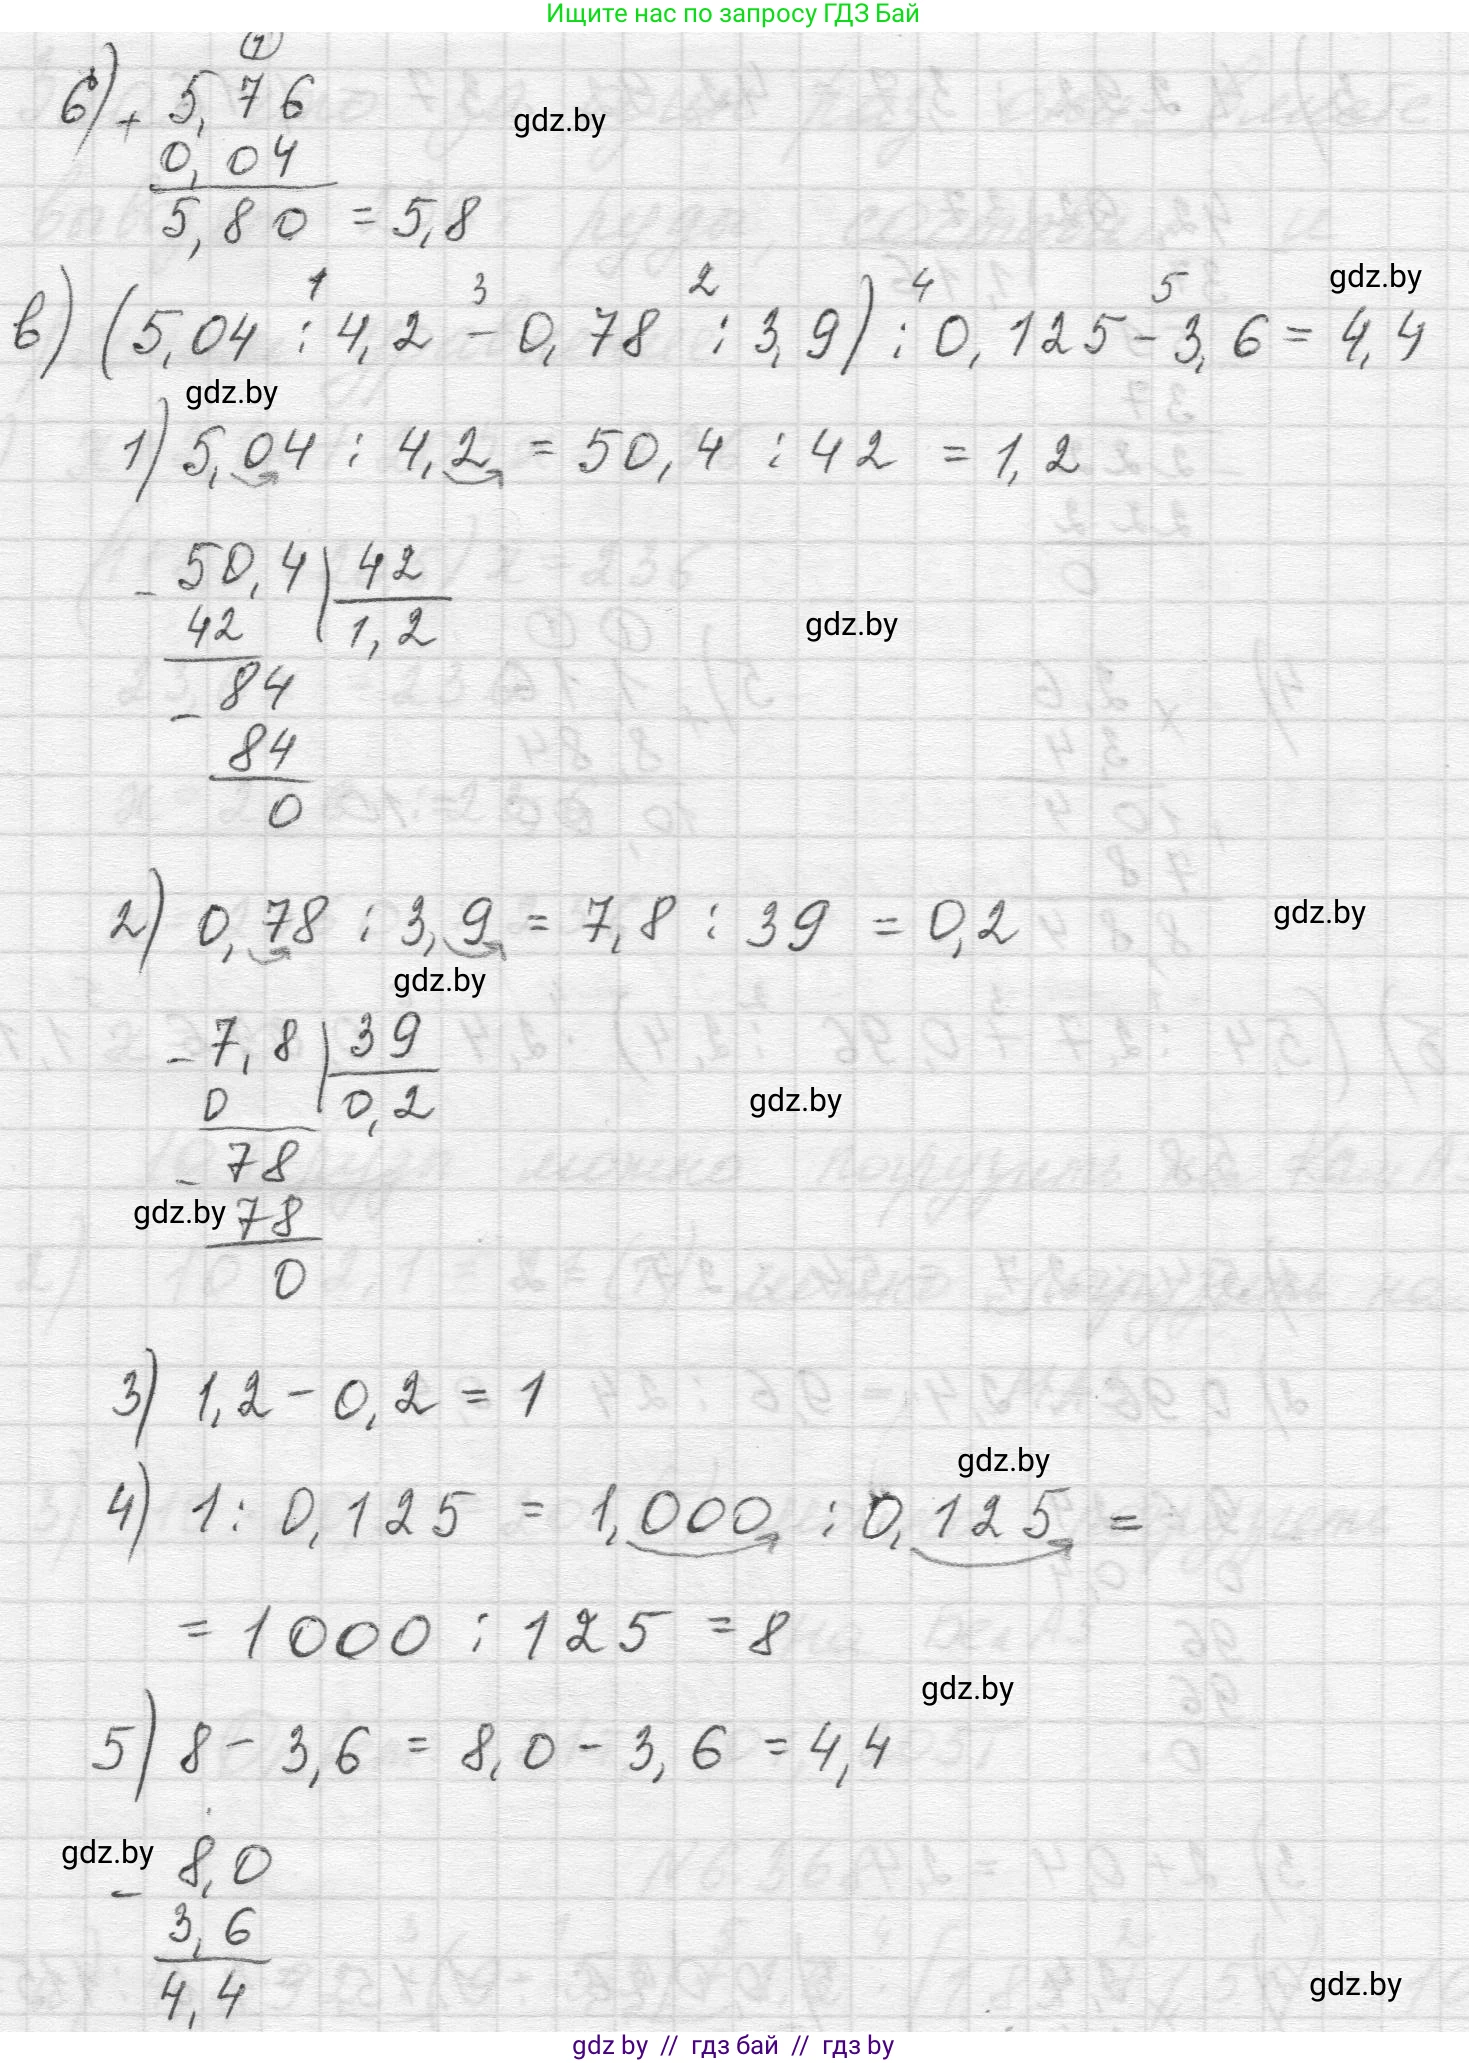 Ищите нас по запросу ГДЗ Бай
1
6) + 5,76
gdz.by
0,04
5,80 = 5,8
gdz.by
1 3 2 4 5
в) (5,04 : 4,2 - 0,78 : 3,9) : 0,125 - 3,6 = 4,4
gdz.by
1) 5,04 : 4,2 = 50,4 : 42 = 1,2
- 50,4 | 42
42 1,2
gdz.by
- 84
84
0
2) 0,78 : 3,9 = 7,8 : 39 = 0,2
gdz.by
gdz.by
- 7,8 | 39
0 0,2
gdz.by
- 78
gdz.by 78
0
3) 1,2 - 0,2 = 1
gdz.by
4) 1 : 0,125 = 1,000 : 0,125 =
= 1000 : 125 = 8
gdz.by
5) 8 - 3,6 = 8,0 - 3,6 = 4,4
gdz.by
- 8,0
3,6
4,4
gdz.by
gdz by // гдз бай // гдз by